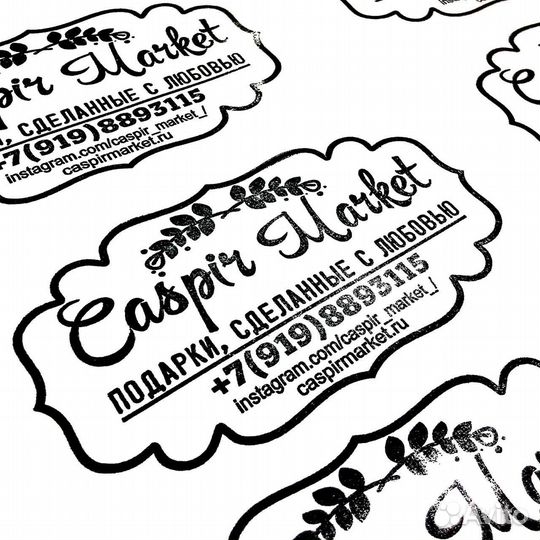 Caspir Market
, СДЕЛАННЫЕ С ЛЮБОВЬЮ
+7(919)8893115
instagram.com/caspir_market_/
caspirmarket.ru
Caspir Market
ПОДАРКИ, СДЕЛАННЫЕ С ЛЮБОВЬЮ
+7(919)8893115
instagram.com/caspir_market_/
caspirmarket.ru
Avito